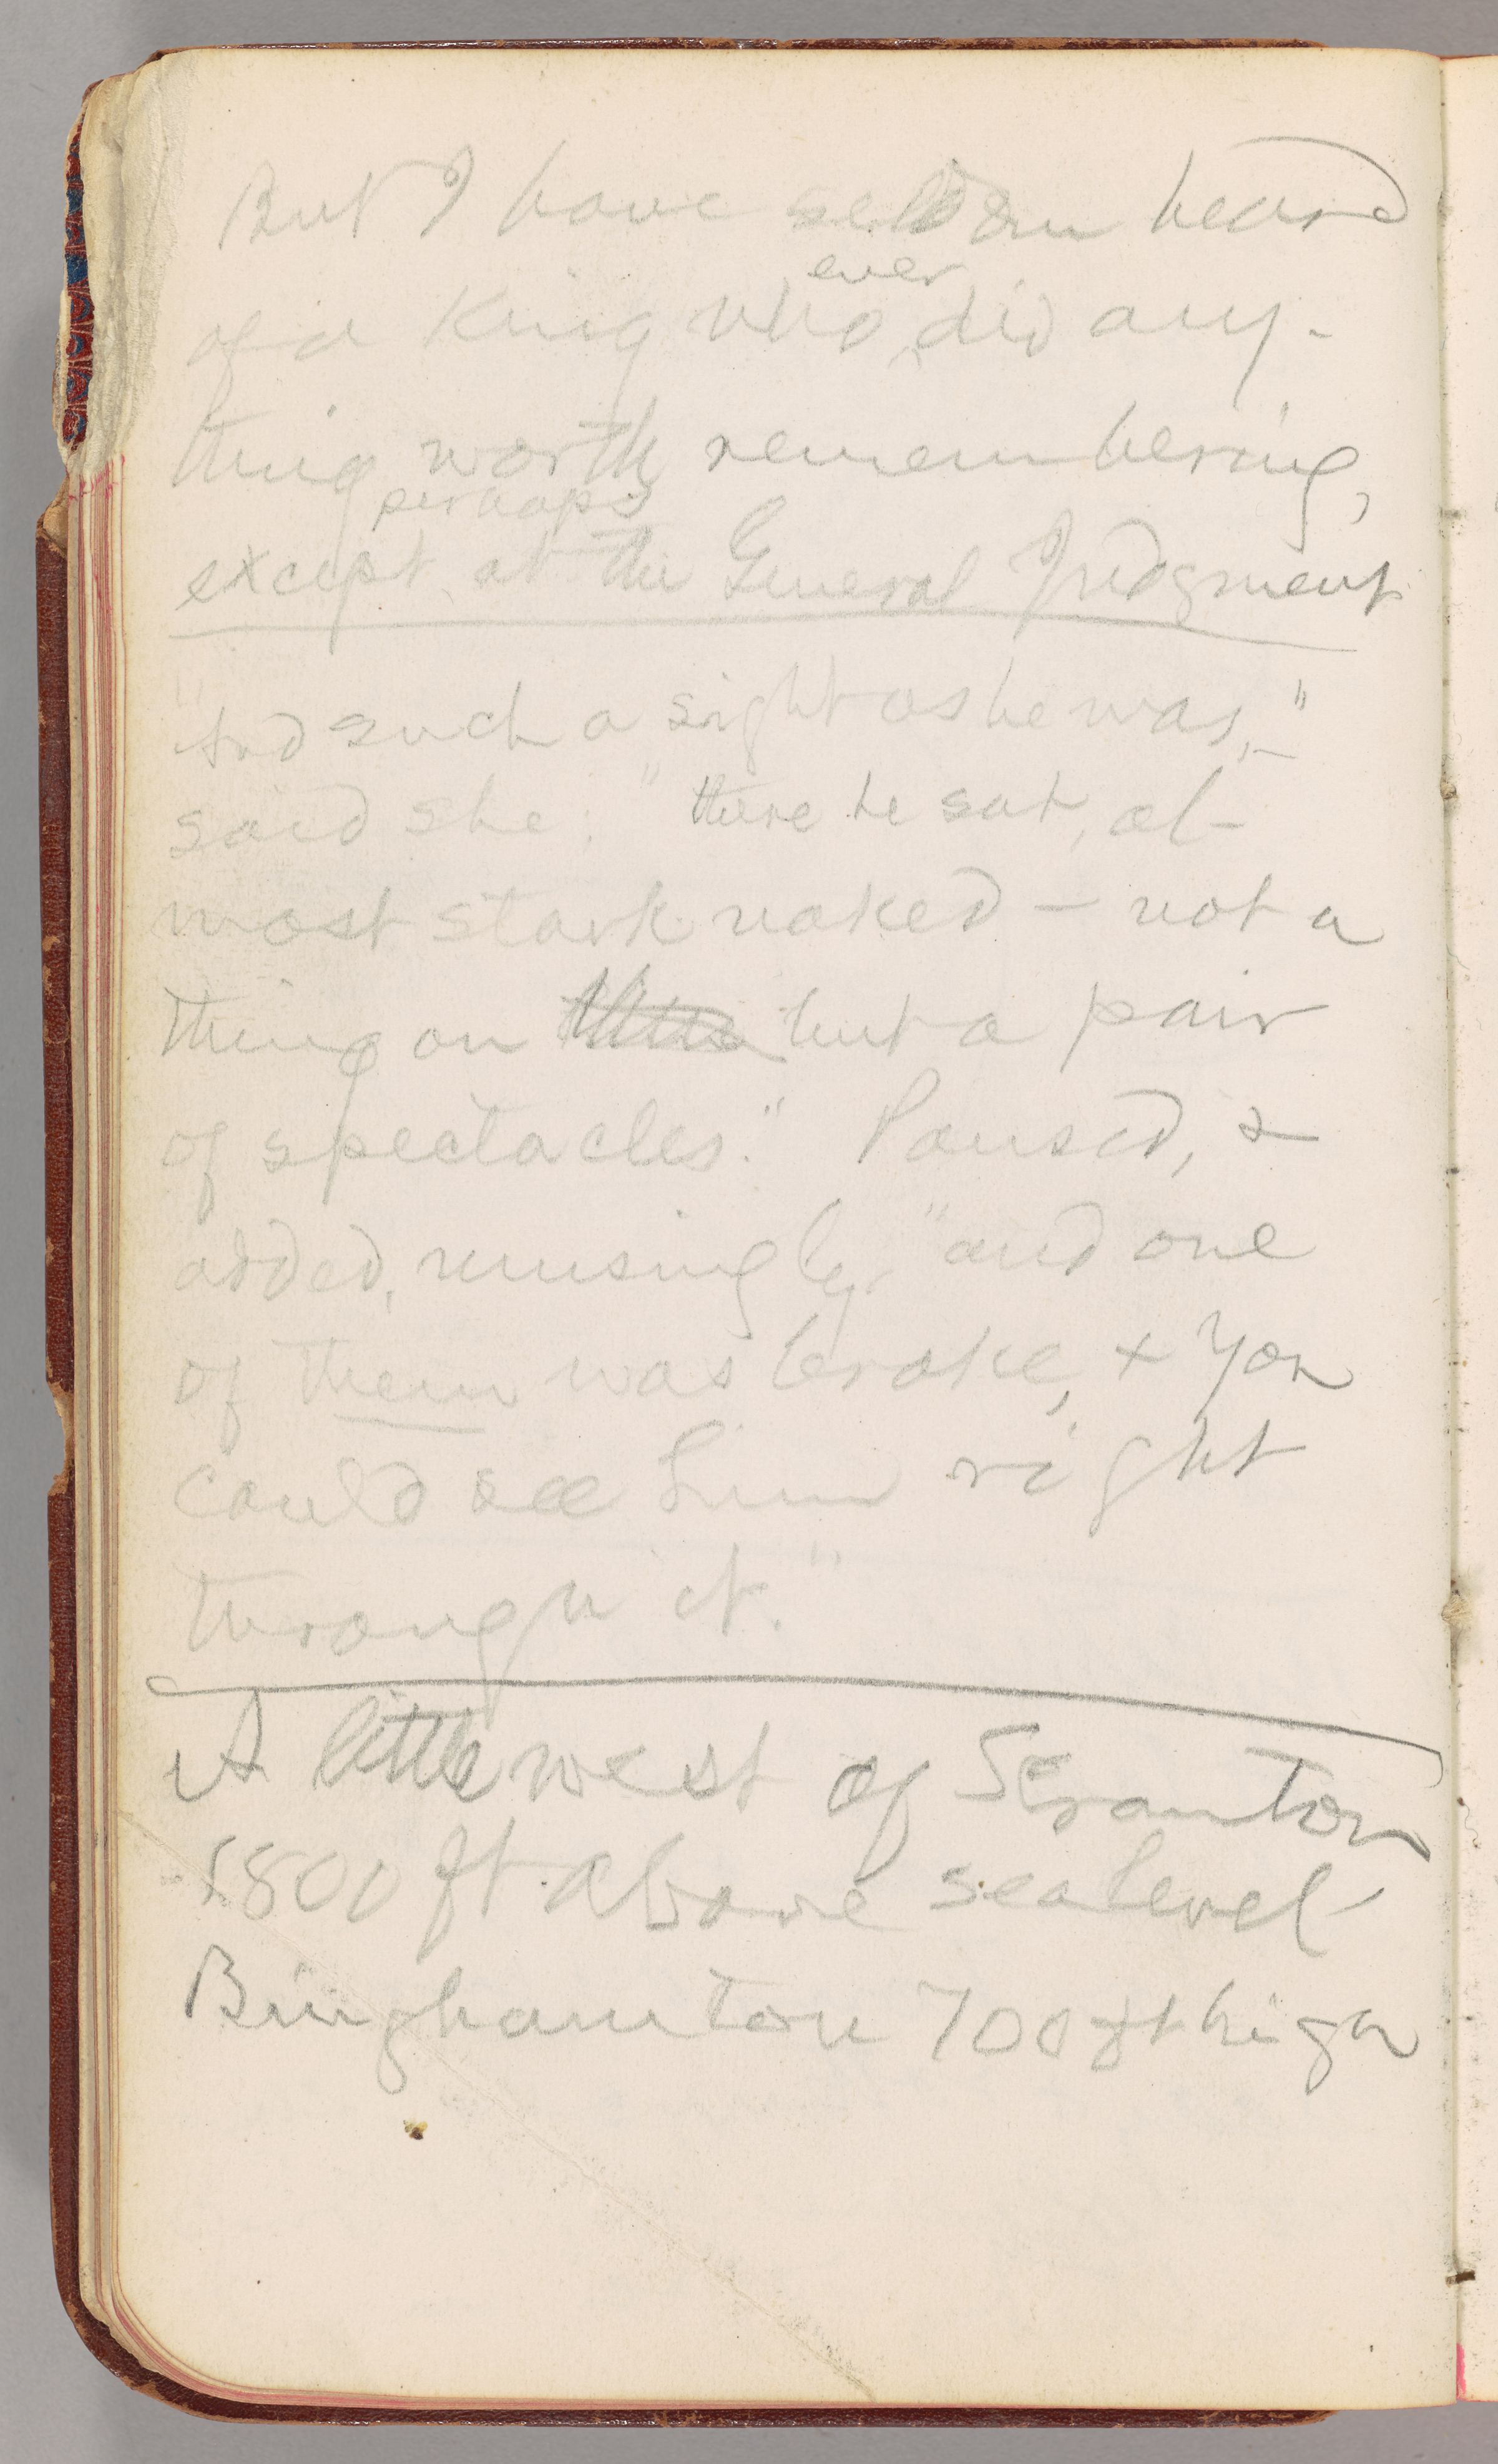 But I have seldom heard
of a King who ever did any-
thing worth remembering,
except perhaps at the General Judgment
"And such a sight as he was,"
said she: "there he sat, al-
most stark naked — not a
thing on but a pair
of spectacles." Paused, &
added, musingly. "and one
of them was broke, & you
could see him right
through it."
A little west of Scranton
1800 ft above sea level –
Binghamton 700 ft high